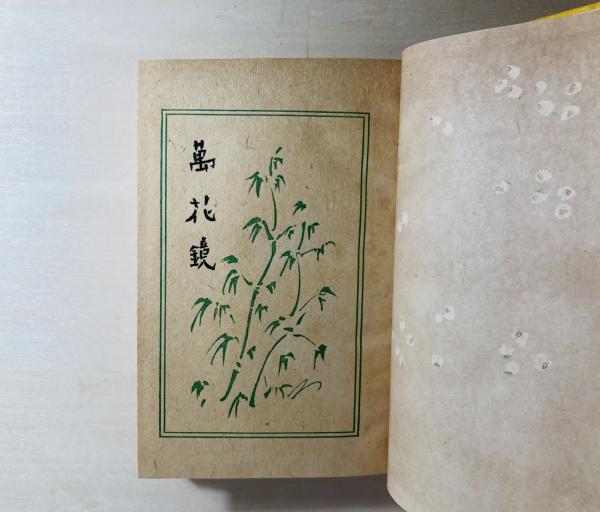 萬花鏡